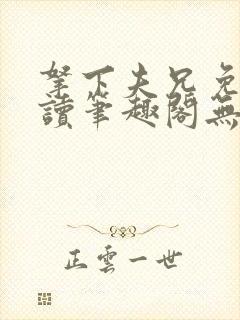 拏下夫兄免
讀筆趣閣無
正雲一世